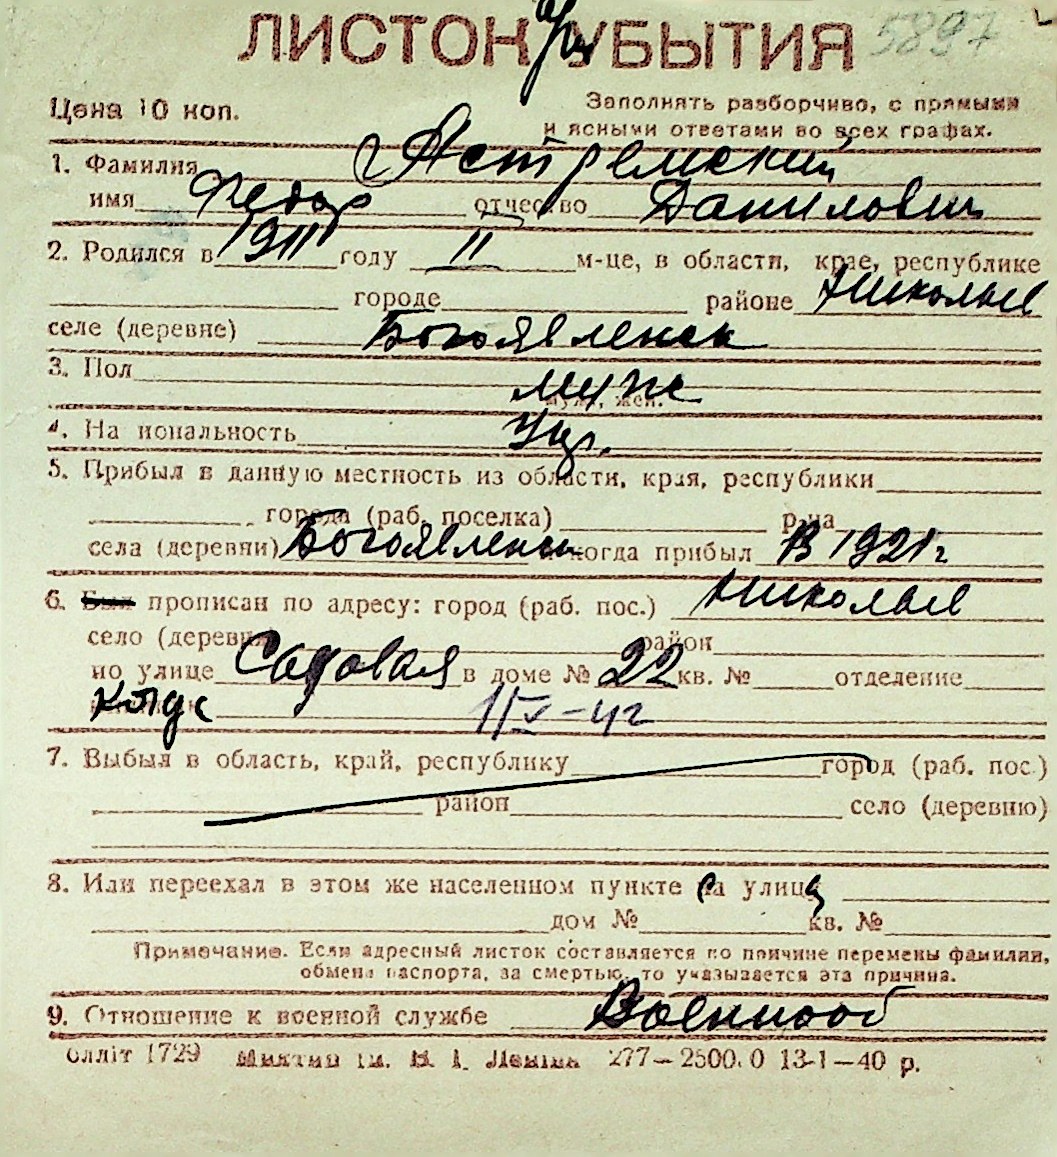 ЛИСТОК УБЫТИЯ 5897
Цена 10 коп.
Заполнять разборчиво, с прямыми
и ясными ответами во всех графах.
1. Фамилия Астремский
имя Федор отчество Данилович
2. Родился в 1911 году 11 м-це, в области, крае, республике
городе районе Николаев
селе (деревне) Богоявленск
3. Пол муж
муж, жен.
4. Национальность Укр.
5. Прибыл в данную местность из области, края, республики
города (раб. поселка) р-на
села (деревни) Богоявленск когда прибыл В 1921 г
6. Был прописан по адресу: город (раб. пос.) Николаев
село (деревня) район
по улице Садовая в доме № 22 кв. № отделение
7. Выбыл в область, край, республику город (раб. пос.)
район село (деревню)
8. Или переехал в этом же населенном пункте на улицу
дом № кв. №
Примечание. Если адресный листок составляется по причине перемены фамилии,
обмена паспорта, за смертью, то указывается эта причина.
9. Отношение к военной службе Военнооб
Оллiт 1729 iм. В. I. Ленiна 277—2500.0 13-1—40 р.